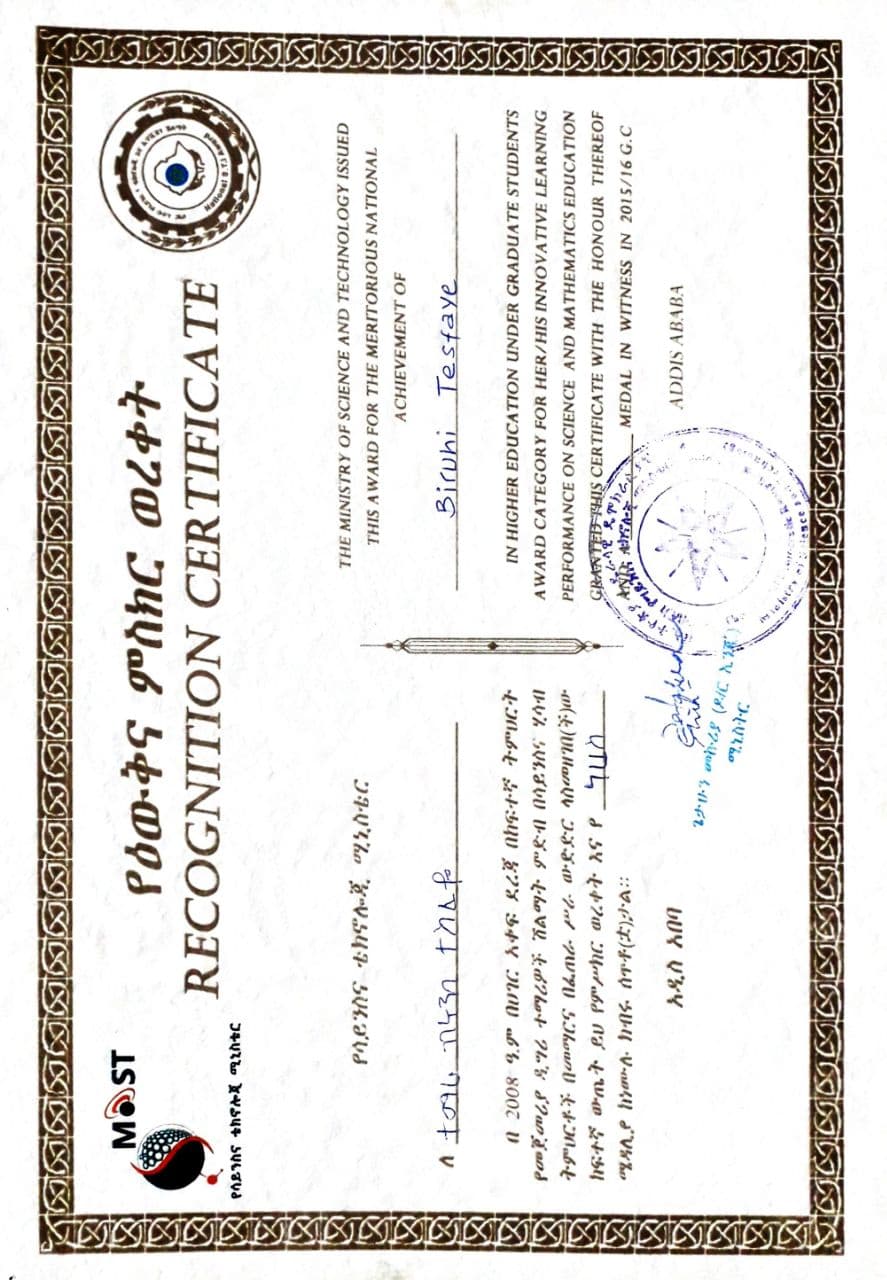 MOST
የሳይንስና ቴክኖሎጂ ሚኒስቴር
የዕውቅና ምስክር ወረቀት
RECOGNITION CERTIFICATE
National S.T.I Award
የሳይንስና ቴክኖሎጂ ሚኒስቴር
ለ ተማሪ ብሩህ ተስፋዬ
በ 2008 ዓ.ም በሀገር አቀፍ ደረጃ በከፍተኛ ትምህርት
የመጀመሪያ ዲግሪ ተማሪዎች ሽልማት ምድብ በሳይንስና ሂሳብ
ትምህርቶች በመማርና በፈጠራ ሥራ ውድድር ላስመዘገበ(ች)ው
ከፍተኛ ውጤት ይህ የምሥክር ወረቀት እና የ ነሀስ
ሜዳሊያ ከነሙሉ ክብሩ ሰጥቶ(ቷ)ታል፡፡
አዲስ አበባ
ጌታሁን መኩሪያ (ዶ/ር ኢንጂ.)
ሚኒስትር
THE MINISTRY OF SCIENCE AND TECHNOLOGY ISSUED
THIS AWARD FOR THE MERITORIOUS NATIONAL
ACHIEVEMENT OF
Biruhi Tesfaye
IN HIGHER EDUCATION UNDER GRADUATE STUDENTS
AWARD CATEGORY FOR HER/HIS INNOVATIVE LEARNING
PERFORMANCE ON SCIENCE AND MATHEMATICS EDUCATION
GRANTED THIS CERTIFICATE WITH THE HONOUR THEREOF
AND A MEDAL IN WITNESS IN 2015/16 G.C
ADDIS ABABA
Ministry of Science and Technology